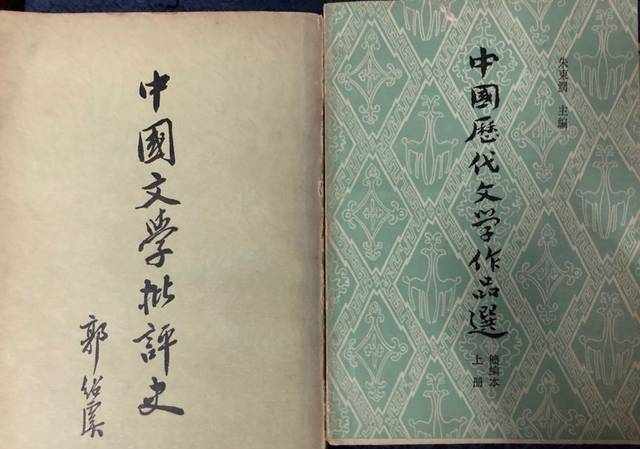 中國文學批評史
郭紹虞
中國歷代文学作品選
朱東潤 主編
簡編本
上册